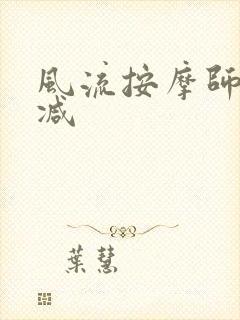 風流按摩師
减
葉慧